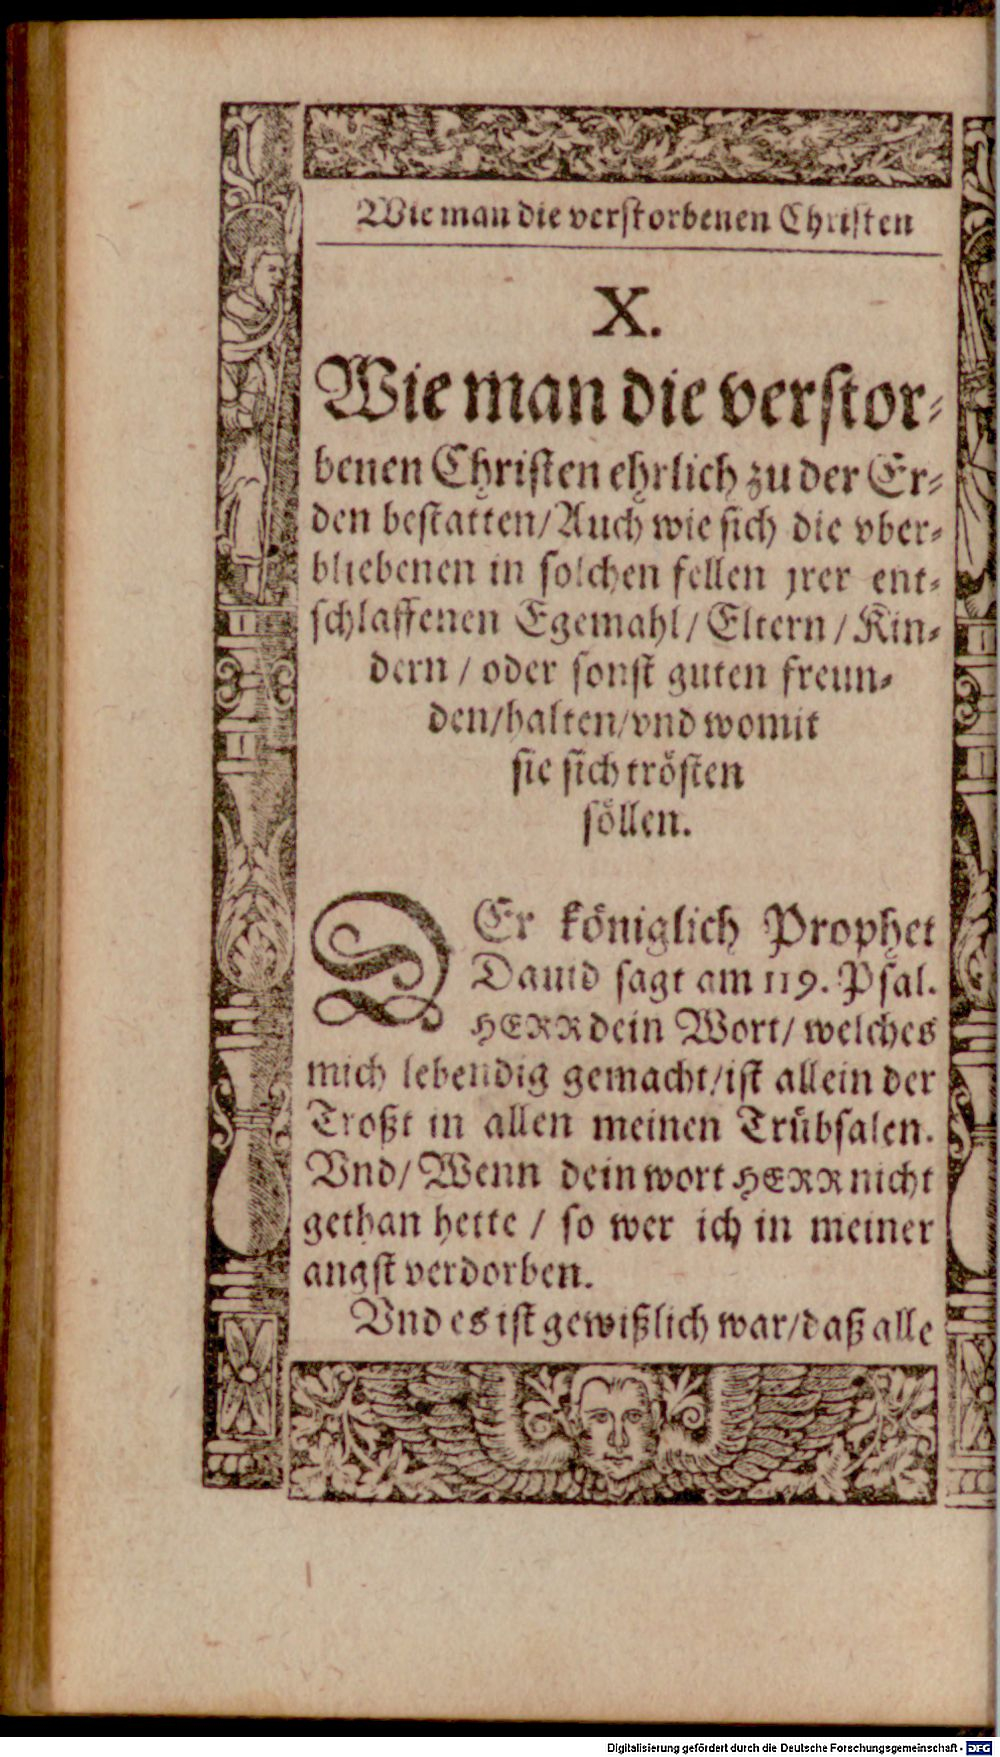 Wie man die verstorbenen Christen
X.
Wie man die verstor⸗
benen Christen ehrlich zu der Er⸗
den bestatten/Auch wie sich die vber⸗
bliebenen in solchen fellen jrer ent⸗
schlaffenen Egemahl/Eltern/Kin⸗
dern/oder sonst guten freun⸗
den/halten/vnd womit
sie sich trösten
söllen.
DEr königlich Prophet
Dauid sagt am 119. Psal.
HERR dein Wort/welches
mich lebendig gemacht/ist allein der
Troßt in allen meinen Trübsalen.
Vnd/Wenn dein wort HERR nicht
gethan hette/so wer ich in meiner
angst verdorben.
Vnd es ist gewißlich war/daß alle
Digitalisierung gefördert durch die Deutsche Forschungsgemeinschaft - DFG